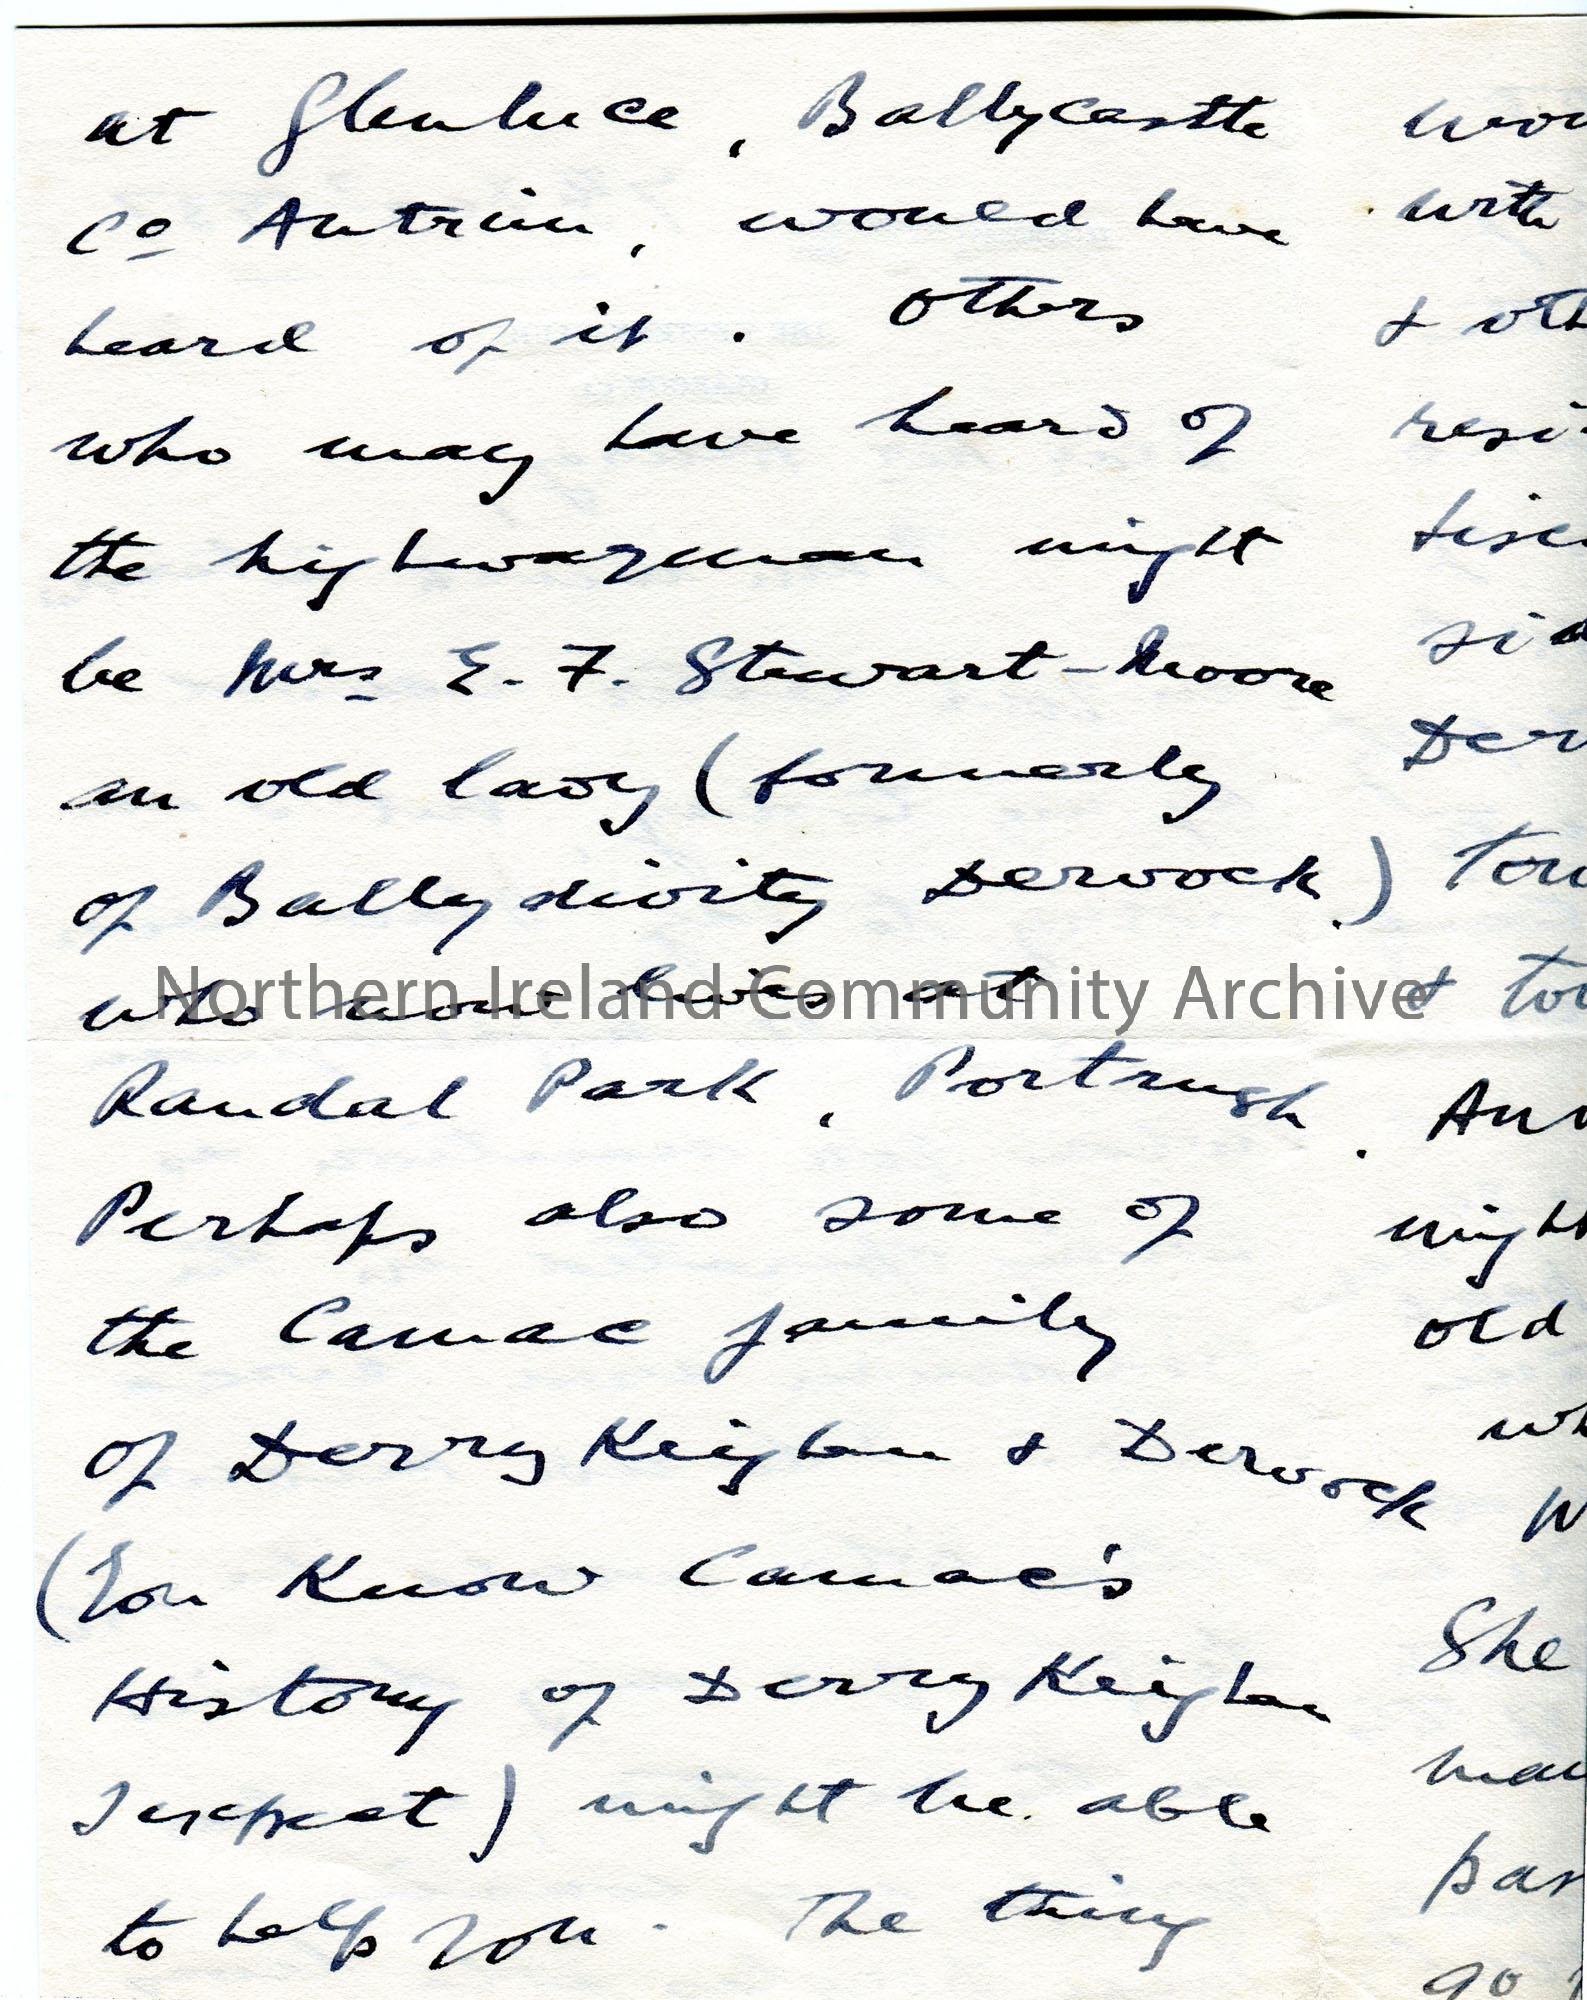 at Glenluce, Ballycastle
Co Antrim, would have
heard of it. Others
who may have heard of
the highwayman might
be Mrs E. F. Stewart-Moore
an old lady (formerly
of Ballydivity Dervock.)
who now lives at
Northern Ireland Community Archive
Randal Park, Portrush.
Perhaps also some of
the Camac family
of DerryKeighan & Dervock
(You Know Camac's
History of DerryKeighan
I expect) might be able
to help you. The thing
with
& oth
resi
Derv
& tow
might
old
wh
She
go